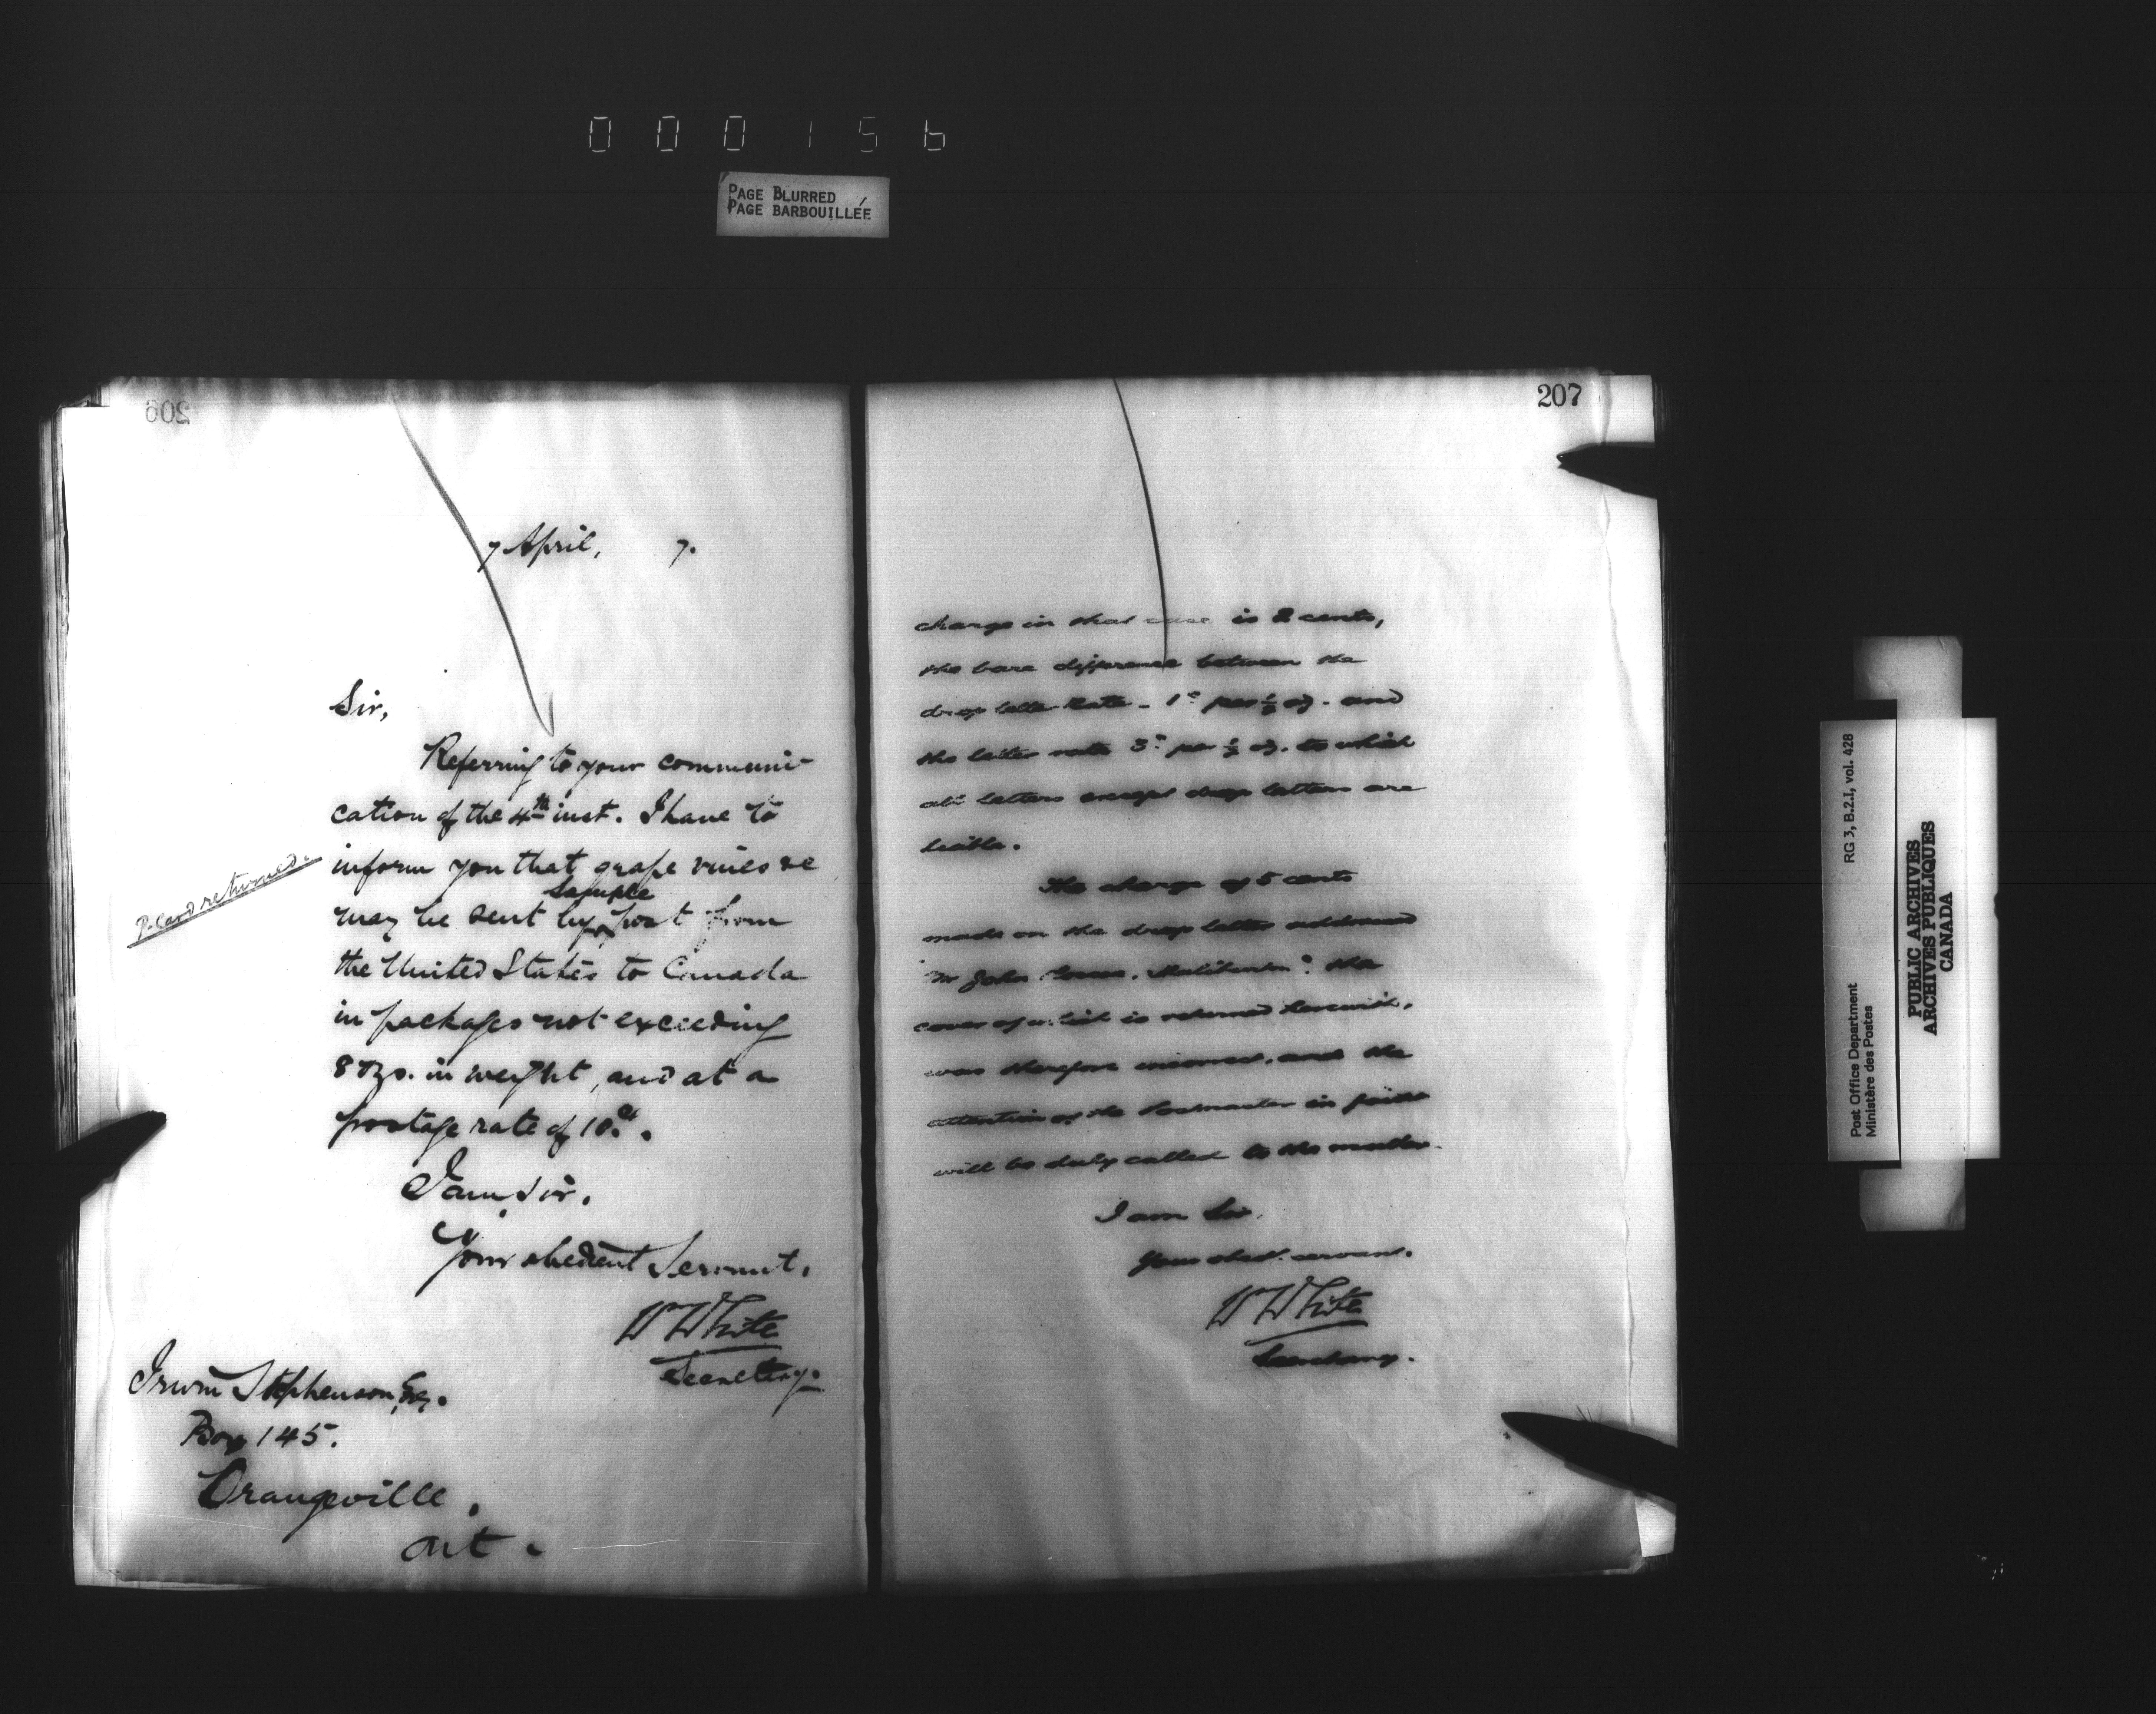 000156
PAGE BLURRED
PAGE BARBOUILLÉE
206
7 April, 7.
Sir,
Referring to your communi-
cation of the 4th inst. I have to
inform you that grape vines &c
may be sent by sample post from
the United States to Canada
in packages not exceeding
8 ozs. in weight, and at a
postage rate of 10 cts.
P. Card returned.
I am, Sir,
Your obedient Servant,
W White
Secretary.
Irwin Stephenson, Esq.
Box 145.
Orangeville,
Ont.
207
charge in that case is 2 cents,
the bare difference between the
drop letter rate - 1c per ½ oz. and
the letter rate 3c per ½ oz. to which
all letters except drop letters are
liable.
The charge of 5 cents
made on the drop letter addressed
"Mr John the
cover of which is returned herewith,
was therefore incorrect, and the
attention of the Postmaster in fault
will be duly called to the matter.
I am Sir,
Your obedt. servant.
W White
Secretary.
Post Office Department
Ministère des Postes
RG 3, B.2.1, vol. 428
PUBLIC ARCHIVES
ARCHIVES PUBLIQUES
CANADA